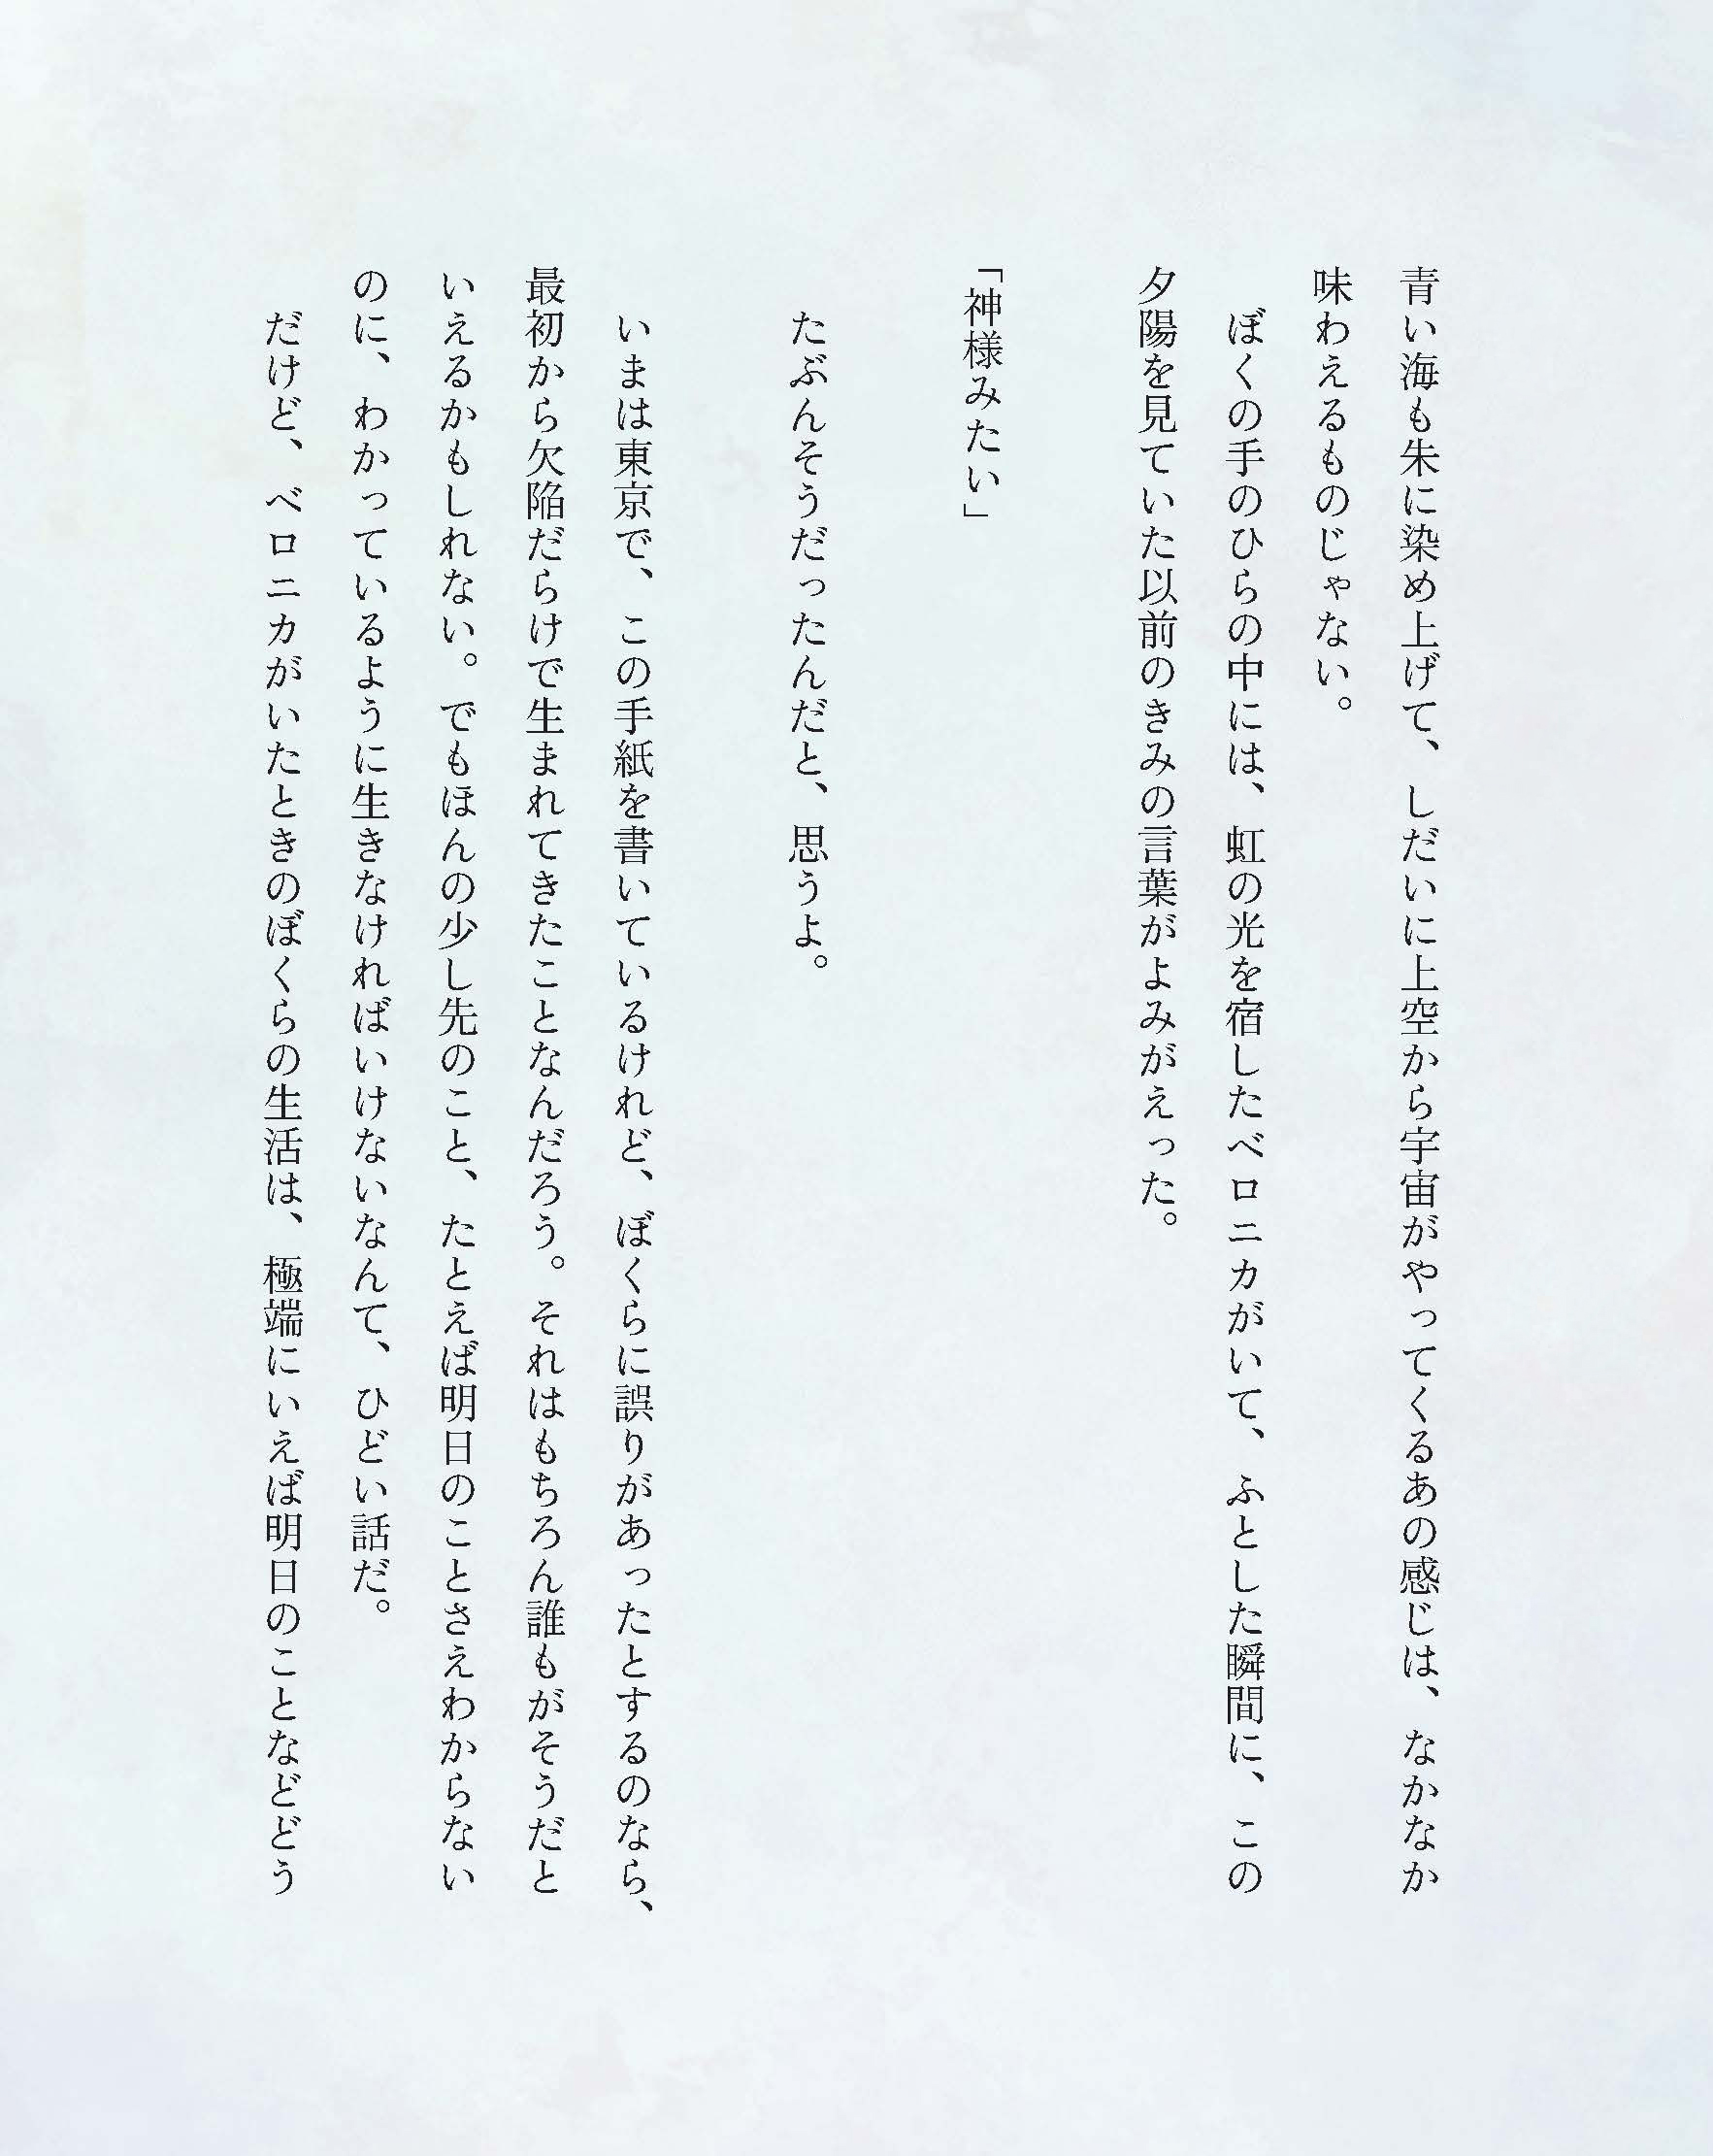 青い海も朱に染め上げて、しだいに上空から宇宙がやってくるあの感じは、なかなか
味わえるものじゃない。
　ぼくの手のひらの中には、虹の光を宿したベロニカがいて、ふとした瞬間に、この
夕陽を見ていた以前のきみの言葉がよみがえった。
「神様みたい」
　たぶんそうだったんだと、思うよ。
　いまは東京で、この手紙を書いているけれど、ぼくらに誤りがあったとするのなら、
最初から欠陥だらけで生まれてきたことなんだろう。それはもちろん誰もがそうだと
いえるかもしれない。でもほんの少し先のこと、たとえば明日のことさえわからない
のに、わかっているように生きなければいけないなんて、ひどい話だ。
　だけど、ベロニカがいたときのぼくらの生活は、極端にいえば明日のことなどどう